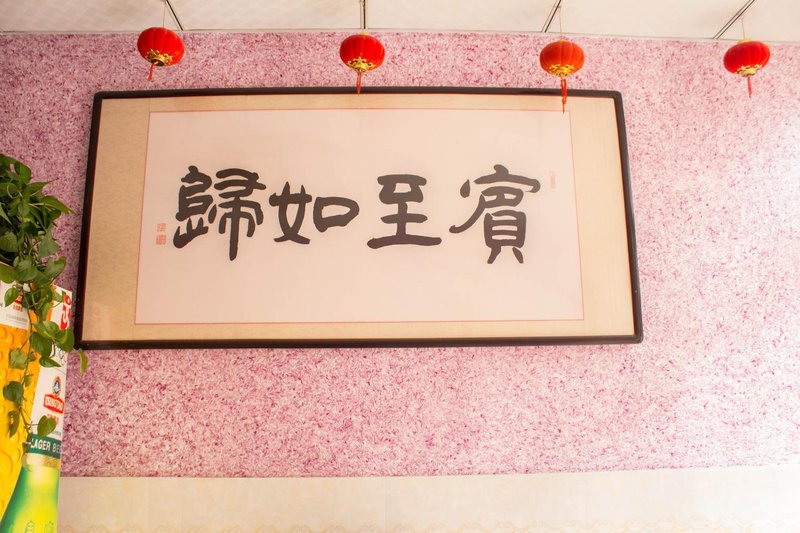 賓至如歸
LAGER BE